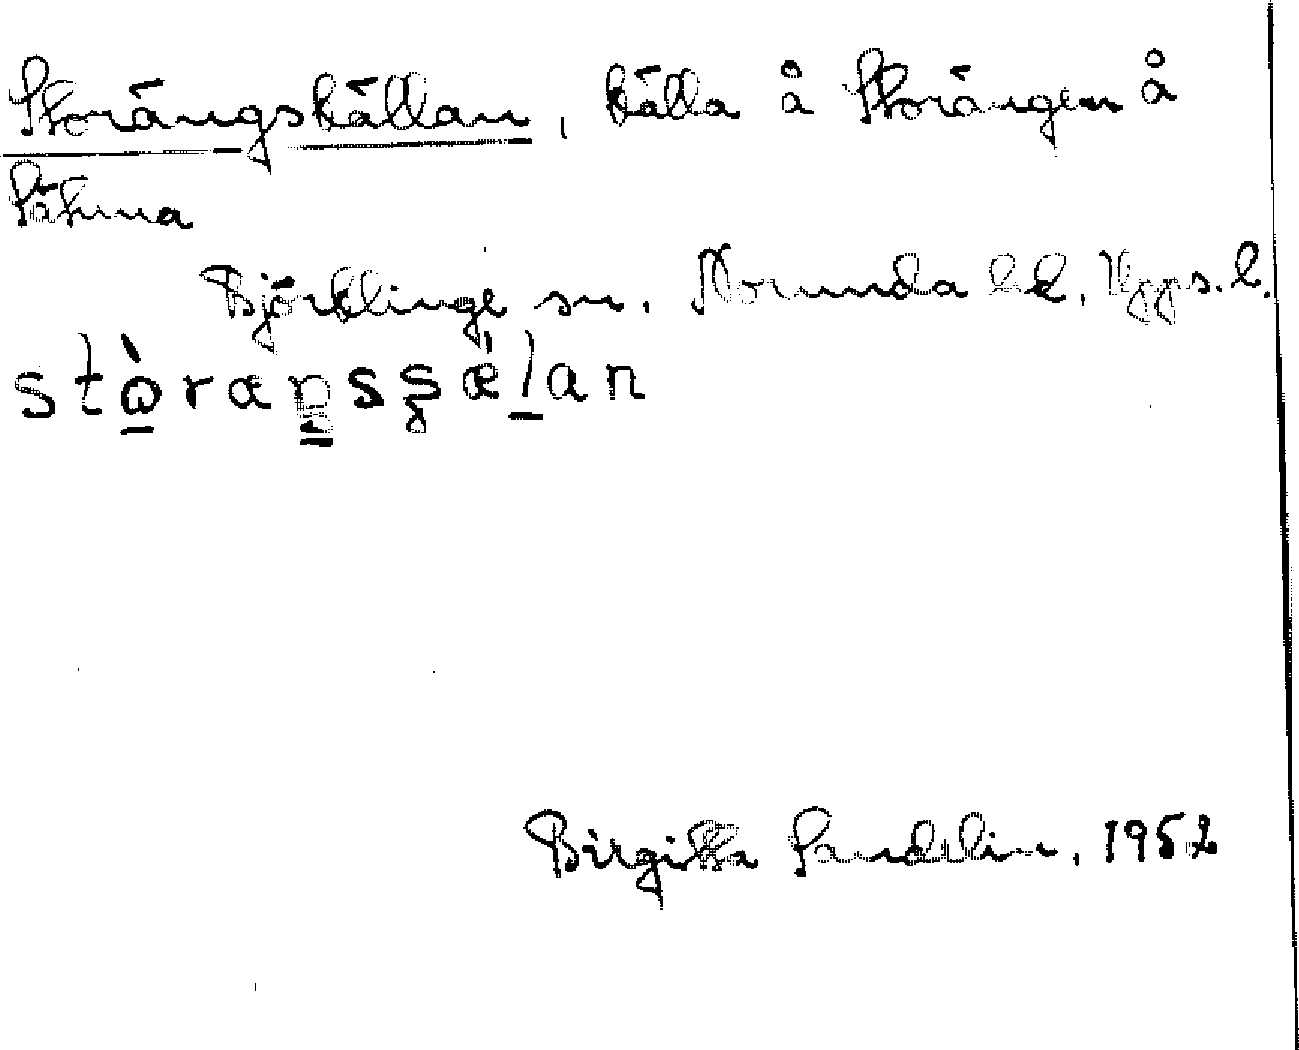 Storängskällan, källa å Storängen å
Sätuna
Björklinge sn. Norunda hd. Upps. l.
Birgitta Sandelin, 1952